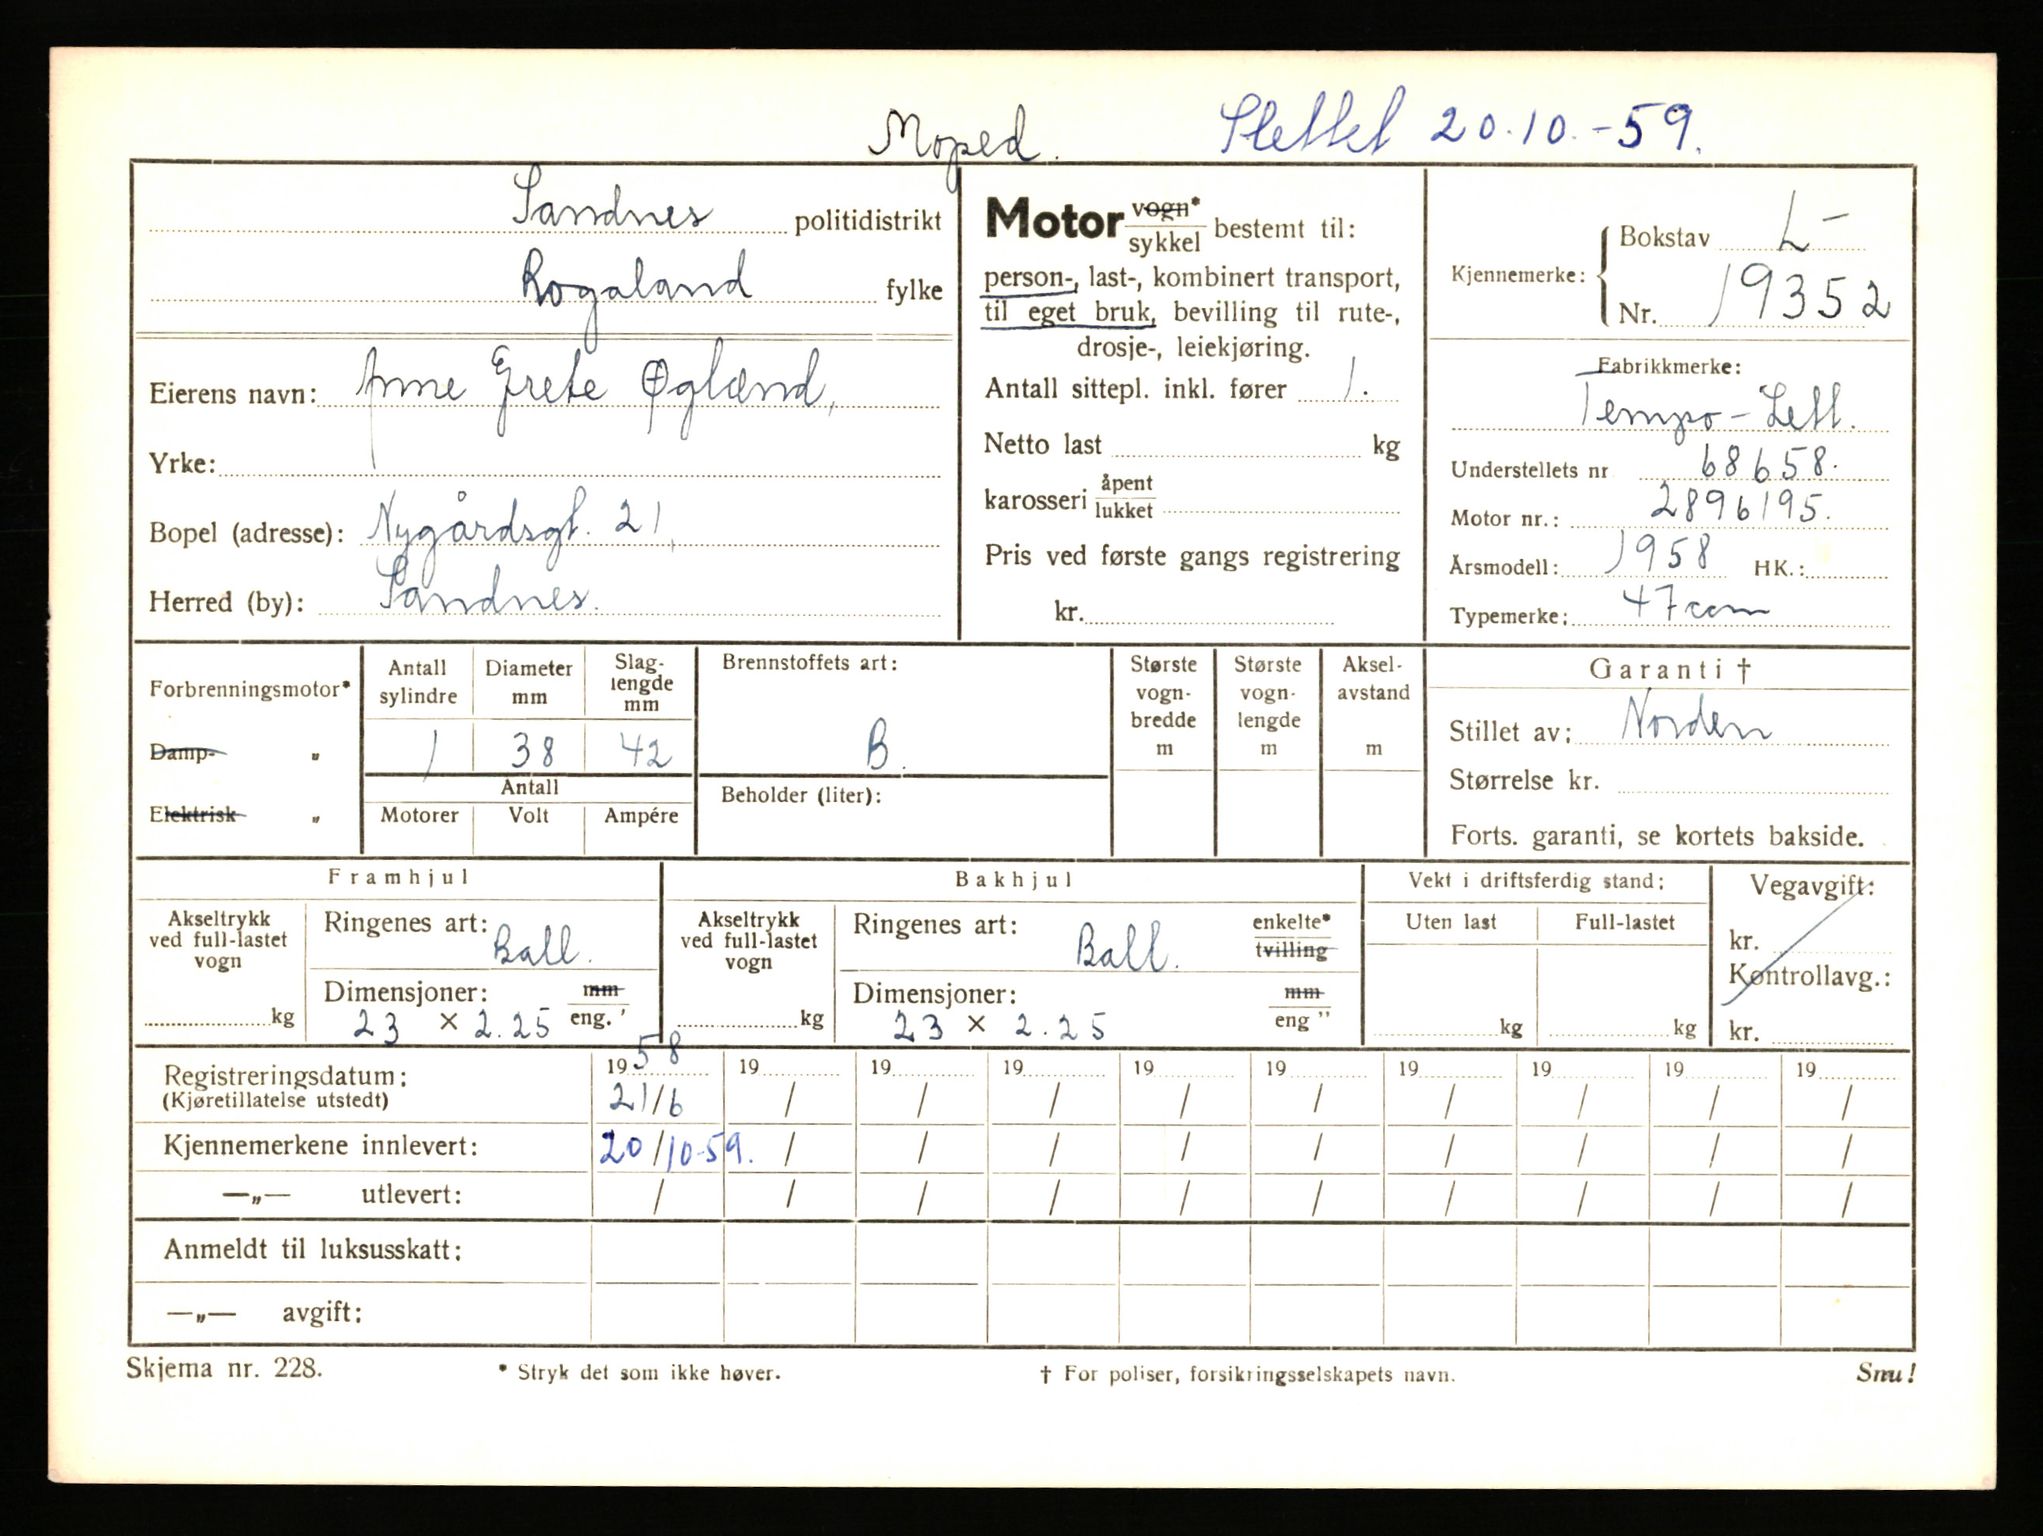 Moped. Slettet 20.10.-59.
Sandnes politidistrikt
Rogaland fylke
Eierens navn: Anne Grete Øglænd,
Yrke:
Bopel (adresse): Nygårdsgt. 21,
Herred (by): Sandnes.
Motor vogn* / sykkel bestemt til:
person-, last-, kombinert transport,
til eget bruk, bevilling til rute-,
drosje-, leiekjøring.
Antall sittepl. inkl. fører 1.
Netto last kg
karosseri åpent / lukket
Pris ved første gangs registrering
kr.
Kjennemerke: Bokstav L-
Nr. 19352
Fabrikkmerke:
Tempo-Lett.
Understellets nr 68658.
Motor nr.: 2896195.
Årsmodell: 1958 HK.:
Typemerke: 47 ccm
Forbrenningsmotor*
Damp- „
Elektrisk „
Antall sylindre
1
Diameter mm
38
Slag-lengde mm
42
Antall
Motorer Volt Ampére
Brennstoffets art:
B.
Beholder (liter):
Største vogn-bredde m
Største vogn-lengde m
Aksel-avstand m
Garanti †
Stillet av: Norden
Størrelse kr.
Forts. garanti, se kortets bakside.
Framhjul
Akseltrykk ved full-lastet vogn
kg
Ringenes art: Ball.
Dimensjoner: mm / eng. '
23 x 2.25
Bakhjul
Akseltrykk ved full-lastet vogn
kg
Ringenes art: Ball. enkelte* / tvilling
Dimensjoner: mm / eng "
23 x 2.25
Vekt i driftsferdig stand:
Uten last Full-lastet
kg kg
Vegavgift:
kr.
Kontrollavg.:
kr.
Registreringsdatum: 1958 19 19 19 19 19 19 19 19 19
(Kjøretillatelse utstedt) 21/6 / / / / / / / / /
Kjennemerkene innlevert: 20/10-59. / / / / / / / / /
—„— utlevert: / / / / / / / / / /
Anmeldt til luksusskatt:
—„— avgift:
Skjema nr. 228. * Stryk det som ikke høver. † For poliser, forsikringsselskapets navn. Snu!